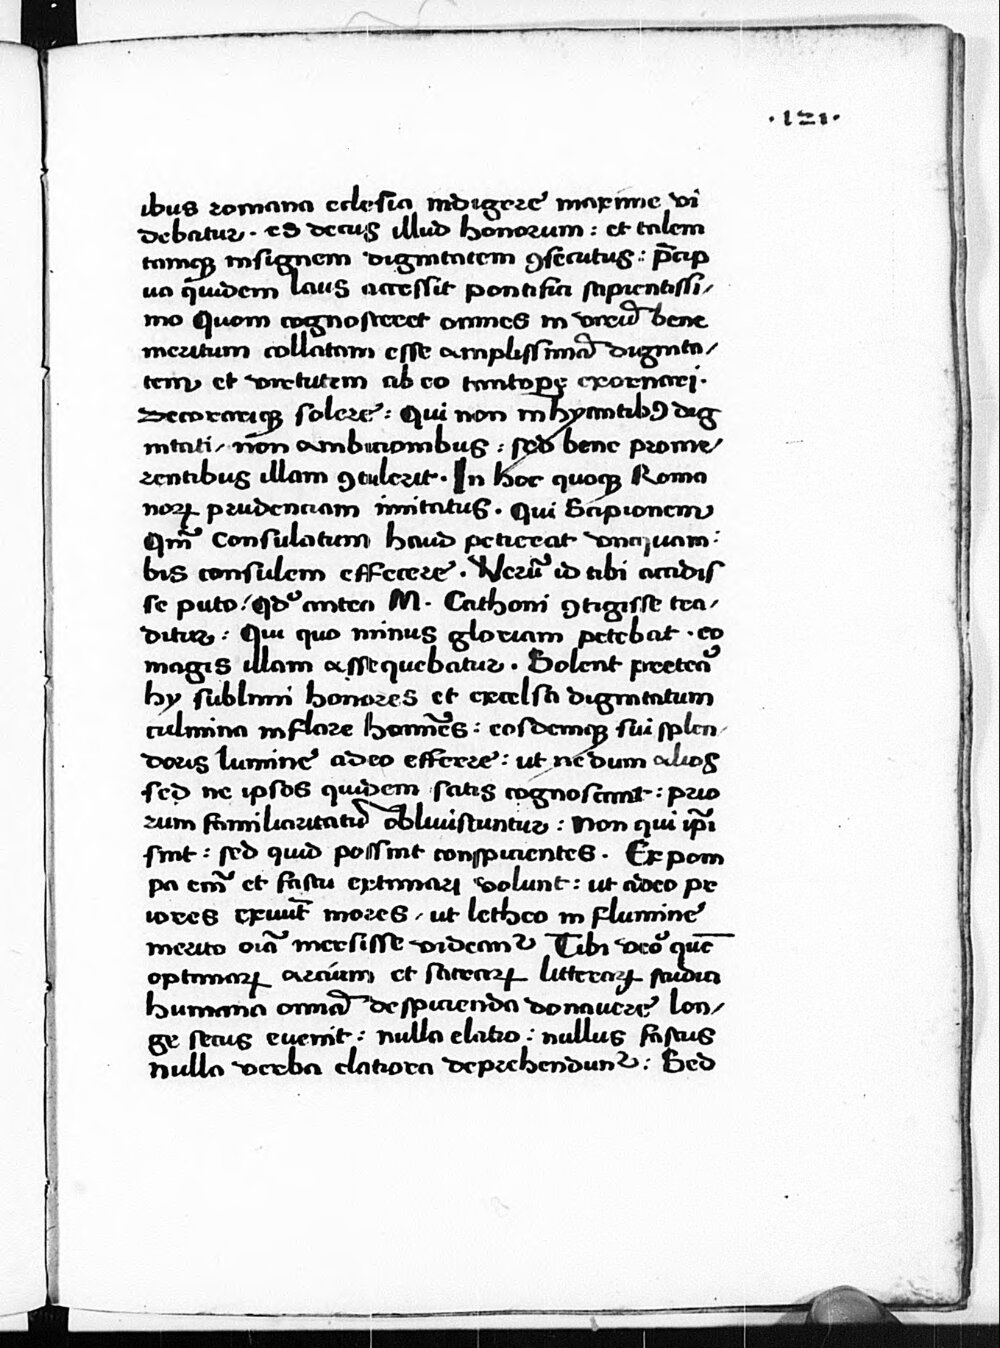 ·121·
ibus romana eclesia indigere maxime vi
debatur. es decus illud honorum: et talem
tamqꝫ insignem dignitatem ꝯsecutus: p̄cip
ua quidem laus accessit pontifici sapientissi/
mo Quom cognosceret omnes in vreū bene
meritum collatam esse amplissimā dignita/
tem et virtutem ab eo tantoꝑe exornari.
Decorariqꝫ solere: Qui non inhyantibꝰ dig
nitati, non ambicionibus: sed bene prome/
rentibus illam ꝯtulerit. In hoc quoqꝫ Roma
noꝝ prudenciam imitatus. Qui Scipionem
Qm̄ Consulatum haud petierat vnquam:
bis consulem effecere. Verū id tibi accidis
se puto: qdͦ antea M. Cathoni ꝯtigisse tra/
ditur: Qui quo minus gloriam petebat. eo
magis illam assequebatur. Solent preteā
hy sublimi honores et excelsa dignitatum
culmina inflare homīes: eosdemqꝫ sui splen/
doris lumine adeo efferre: ut nedum alios
sed ne ipsos quidem satis cognoscant: prio
rum familiaritatū obliuiscuntur: Non qui ip̄i
sint: sed quid possint conspicientes. Ex pom
pa em̄ et fastu extimari volunt: ut adeo pr
iores exuūt mores, ut letheo in flumine
merito oīa mersisse videant᷑ Tibi veͦ quē
optimaꝝ arcium et sacraꝝ litteraꝝ studia
humana omīa despicienda donauere lon/
ge secus euenit: nulla elatio: nullus fastus
nulla verba elatiora deprehendunt᷑: Sed